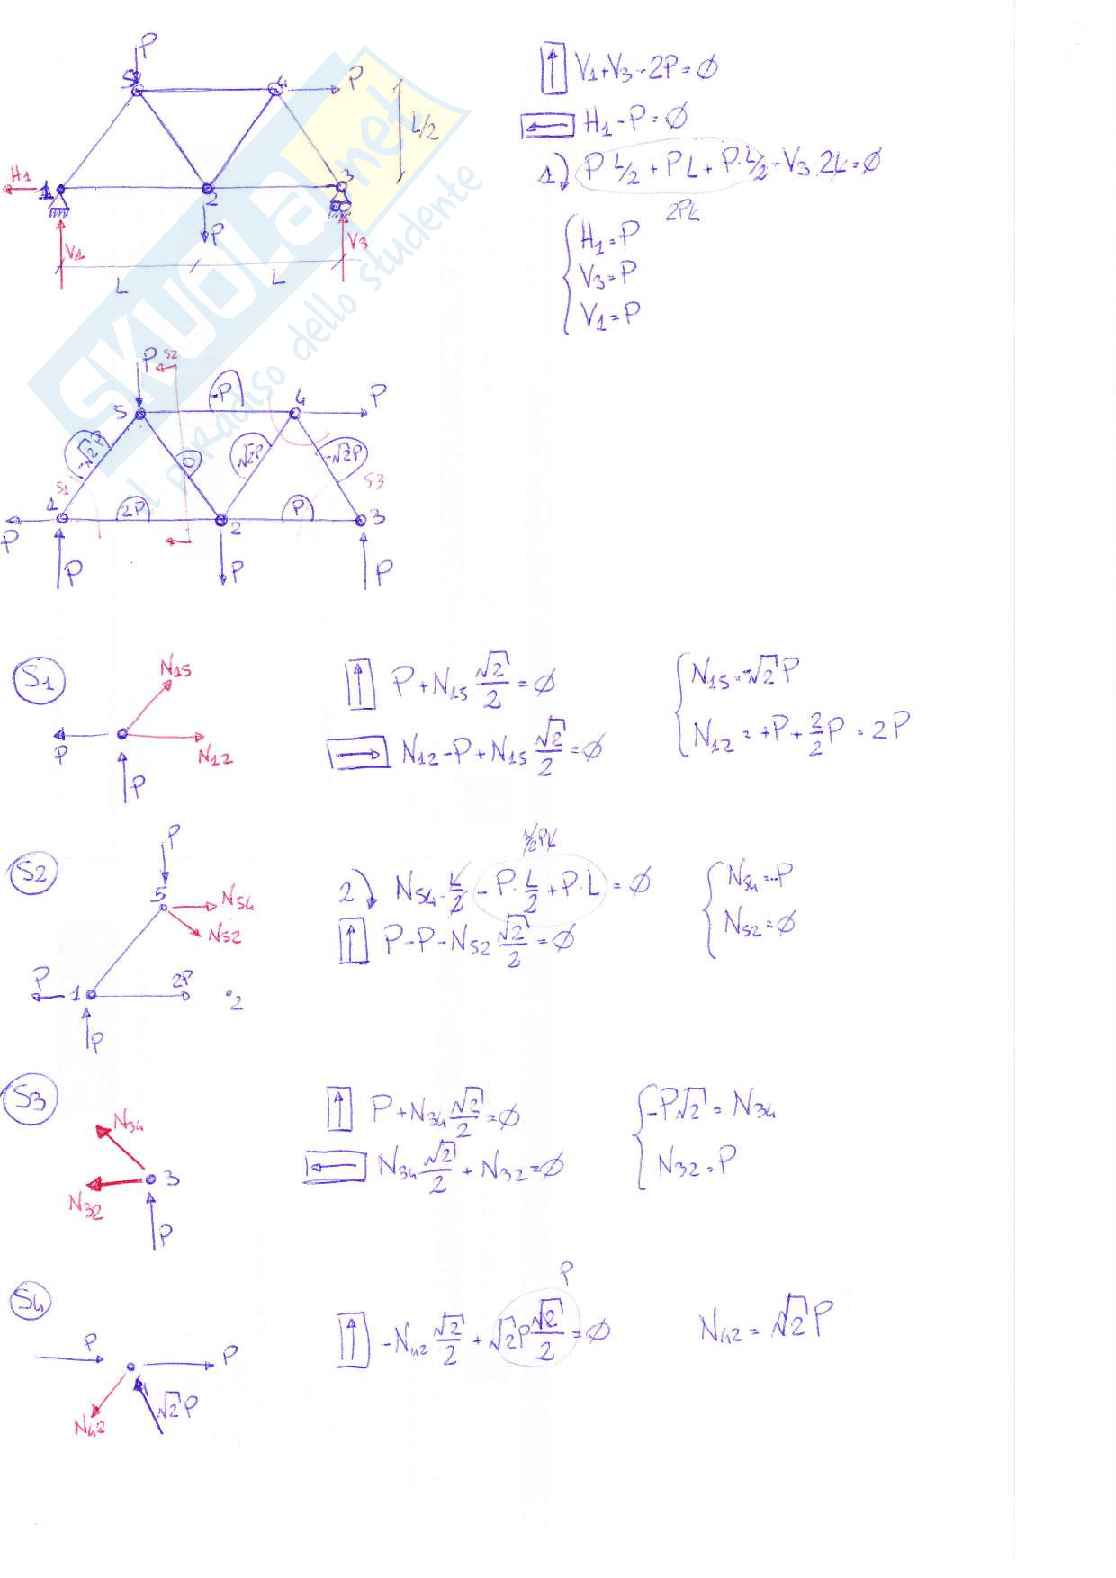 P
5 4 P
L/2
H1 1 2 3
P
V1 V3
L L
V1+V3-2P=∅
H1-P=∅
1) P L/2 + PL + P·L/2 - V3 2L=∅
2PL
H1=P
V3=P
V1=P
SKUOLA.net
il paradiso dello studente
P S2
5 -P 4 P
-√2P 0 √2P -√2P
S1 S3
1 2P 2 P 3
P
P P P
S1
N15
P N12
P
P+N15 √2/2=∅
N12-P+N15 √2/2=∅
N15=-√2P
N12=+P+2/2P=2P
S2
P
5 N54
N52
P 1 2P 2
P
1/2PL
2) N54·L/2-P·L/2+P·L=∅
P-P-N52 √2/2=∅
N54=-P
N52=∅
S3
N34
3
N32
P
P+N34 √2/2=∅
N34 √2/2+N32=∅
-P√2=N34
N32=P
S4
P P
N42 √2P
P
-N42 √2/2+√2P √2/2=∅
N42=√2P